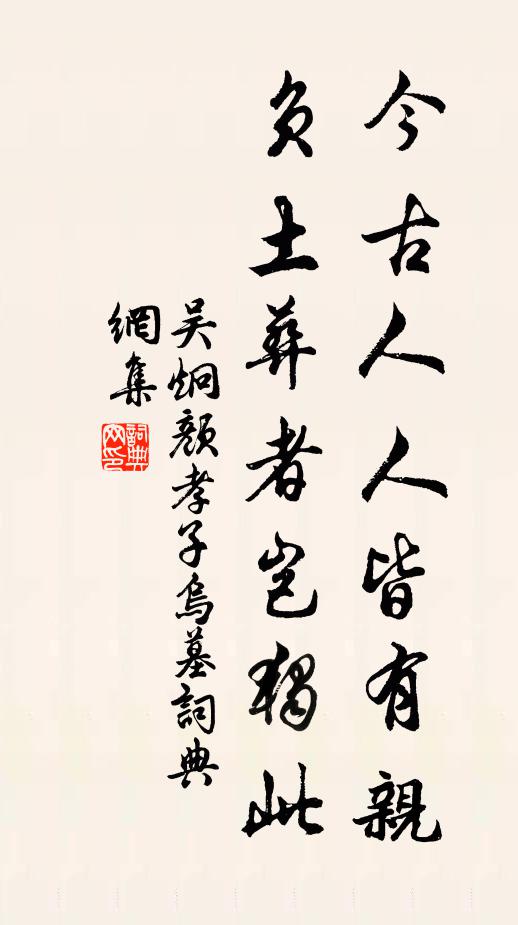 今古人人皆有親
負土葬者豈獨此
吴炯顏孝子烏墓詞典
網集
詞典網印